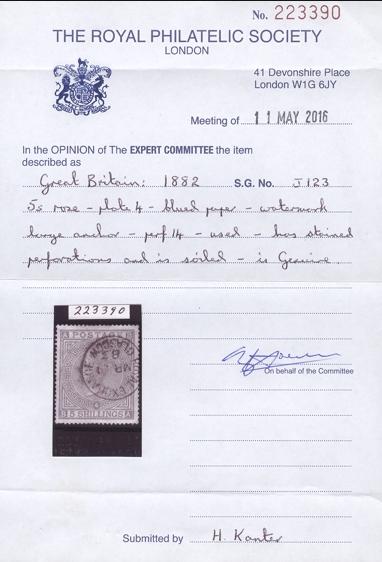 No. 223390
THE ROYAL PHILATELIC SOCIETY
LONDON
41 Devonshire Place
London W1G 6JY
Meeting of 11 MAY 2016
In the OPINION of The EXPERT COMMITTEE the item
described as
Great Britain: 1882 S.G. No. J123
5s rose - plate 4 - blued paper - watermark
large anchor - perf 14 - used - has stained
perforations and is soiled - is Genuine.
223390
POSTAGE
5 SHILLINGS
On behalf of the Committee
Submitted by H. Kanter